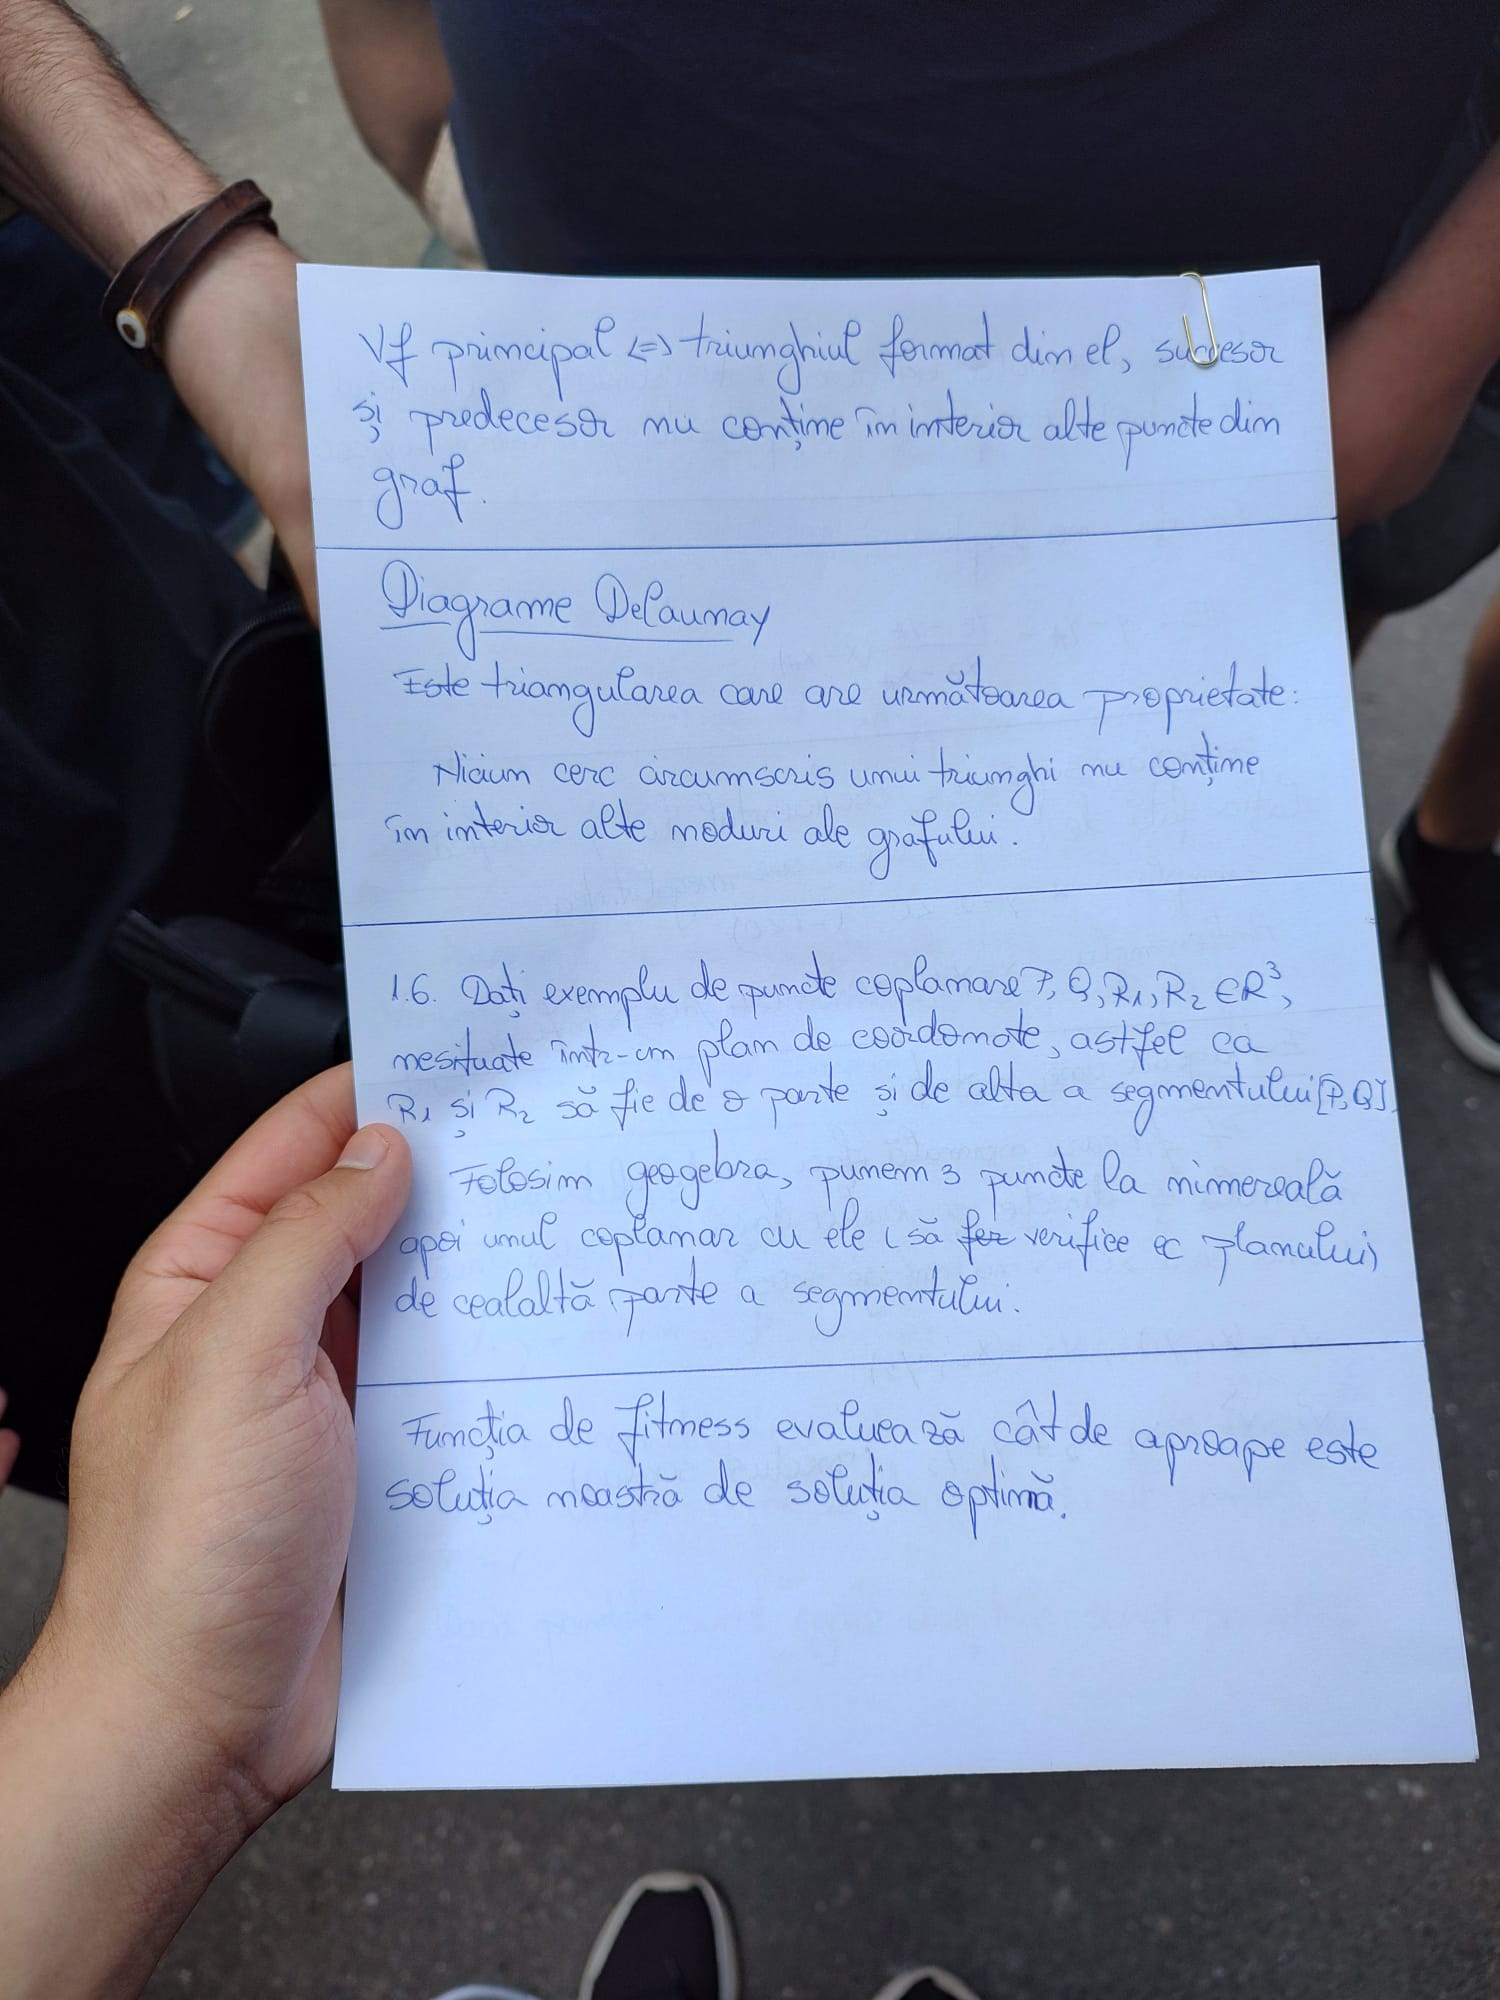 Vf principal <=> triunghiul format din el, succesor
și predecesor nu conține în interior alte puncte din
graf.
Diagrame Delaunay
Este triangularea care are următoarea proprietate:
Niciun cerc circumscris unui triunghi nu conține
în interior alte noduri ale grafului.
1.6. Dați exemplu de puncte coplanare P, Q, R₁, R₂ ∈ R³,
nesituate într-un plan de coordonate, astfel ca
R₁ și R₂ să fie de o parte și de alta a segmentului [P,Q].
Folosim geogebra, punem 3 puncte la nimereală
apoi unul coplanar cu ele (să fer verifice ec planului)
de cealaltă parte a segmentului.
Funcția de fitness evaluează cât de aproape este
soluția noastră de soluția optimă.